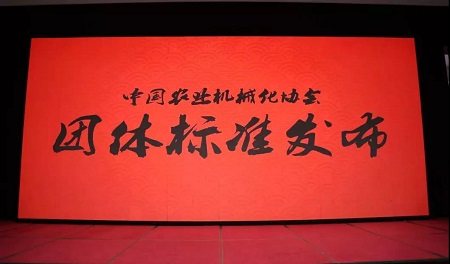 中国农业机械化协会
团体标准发布